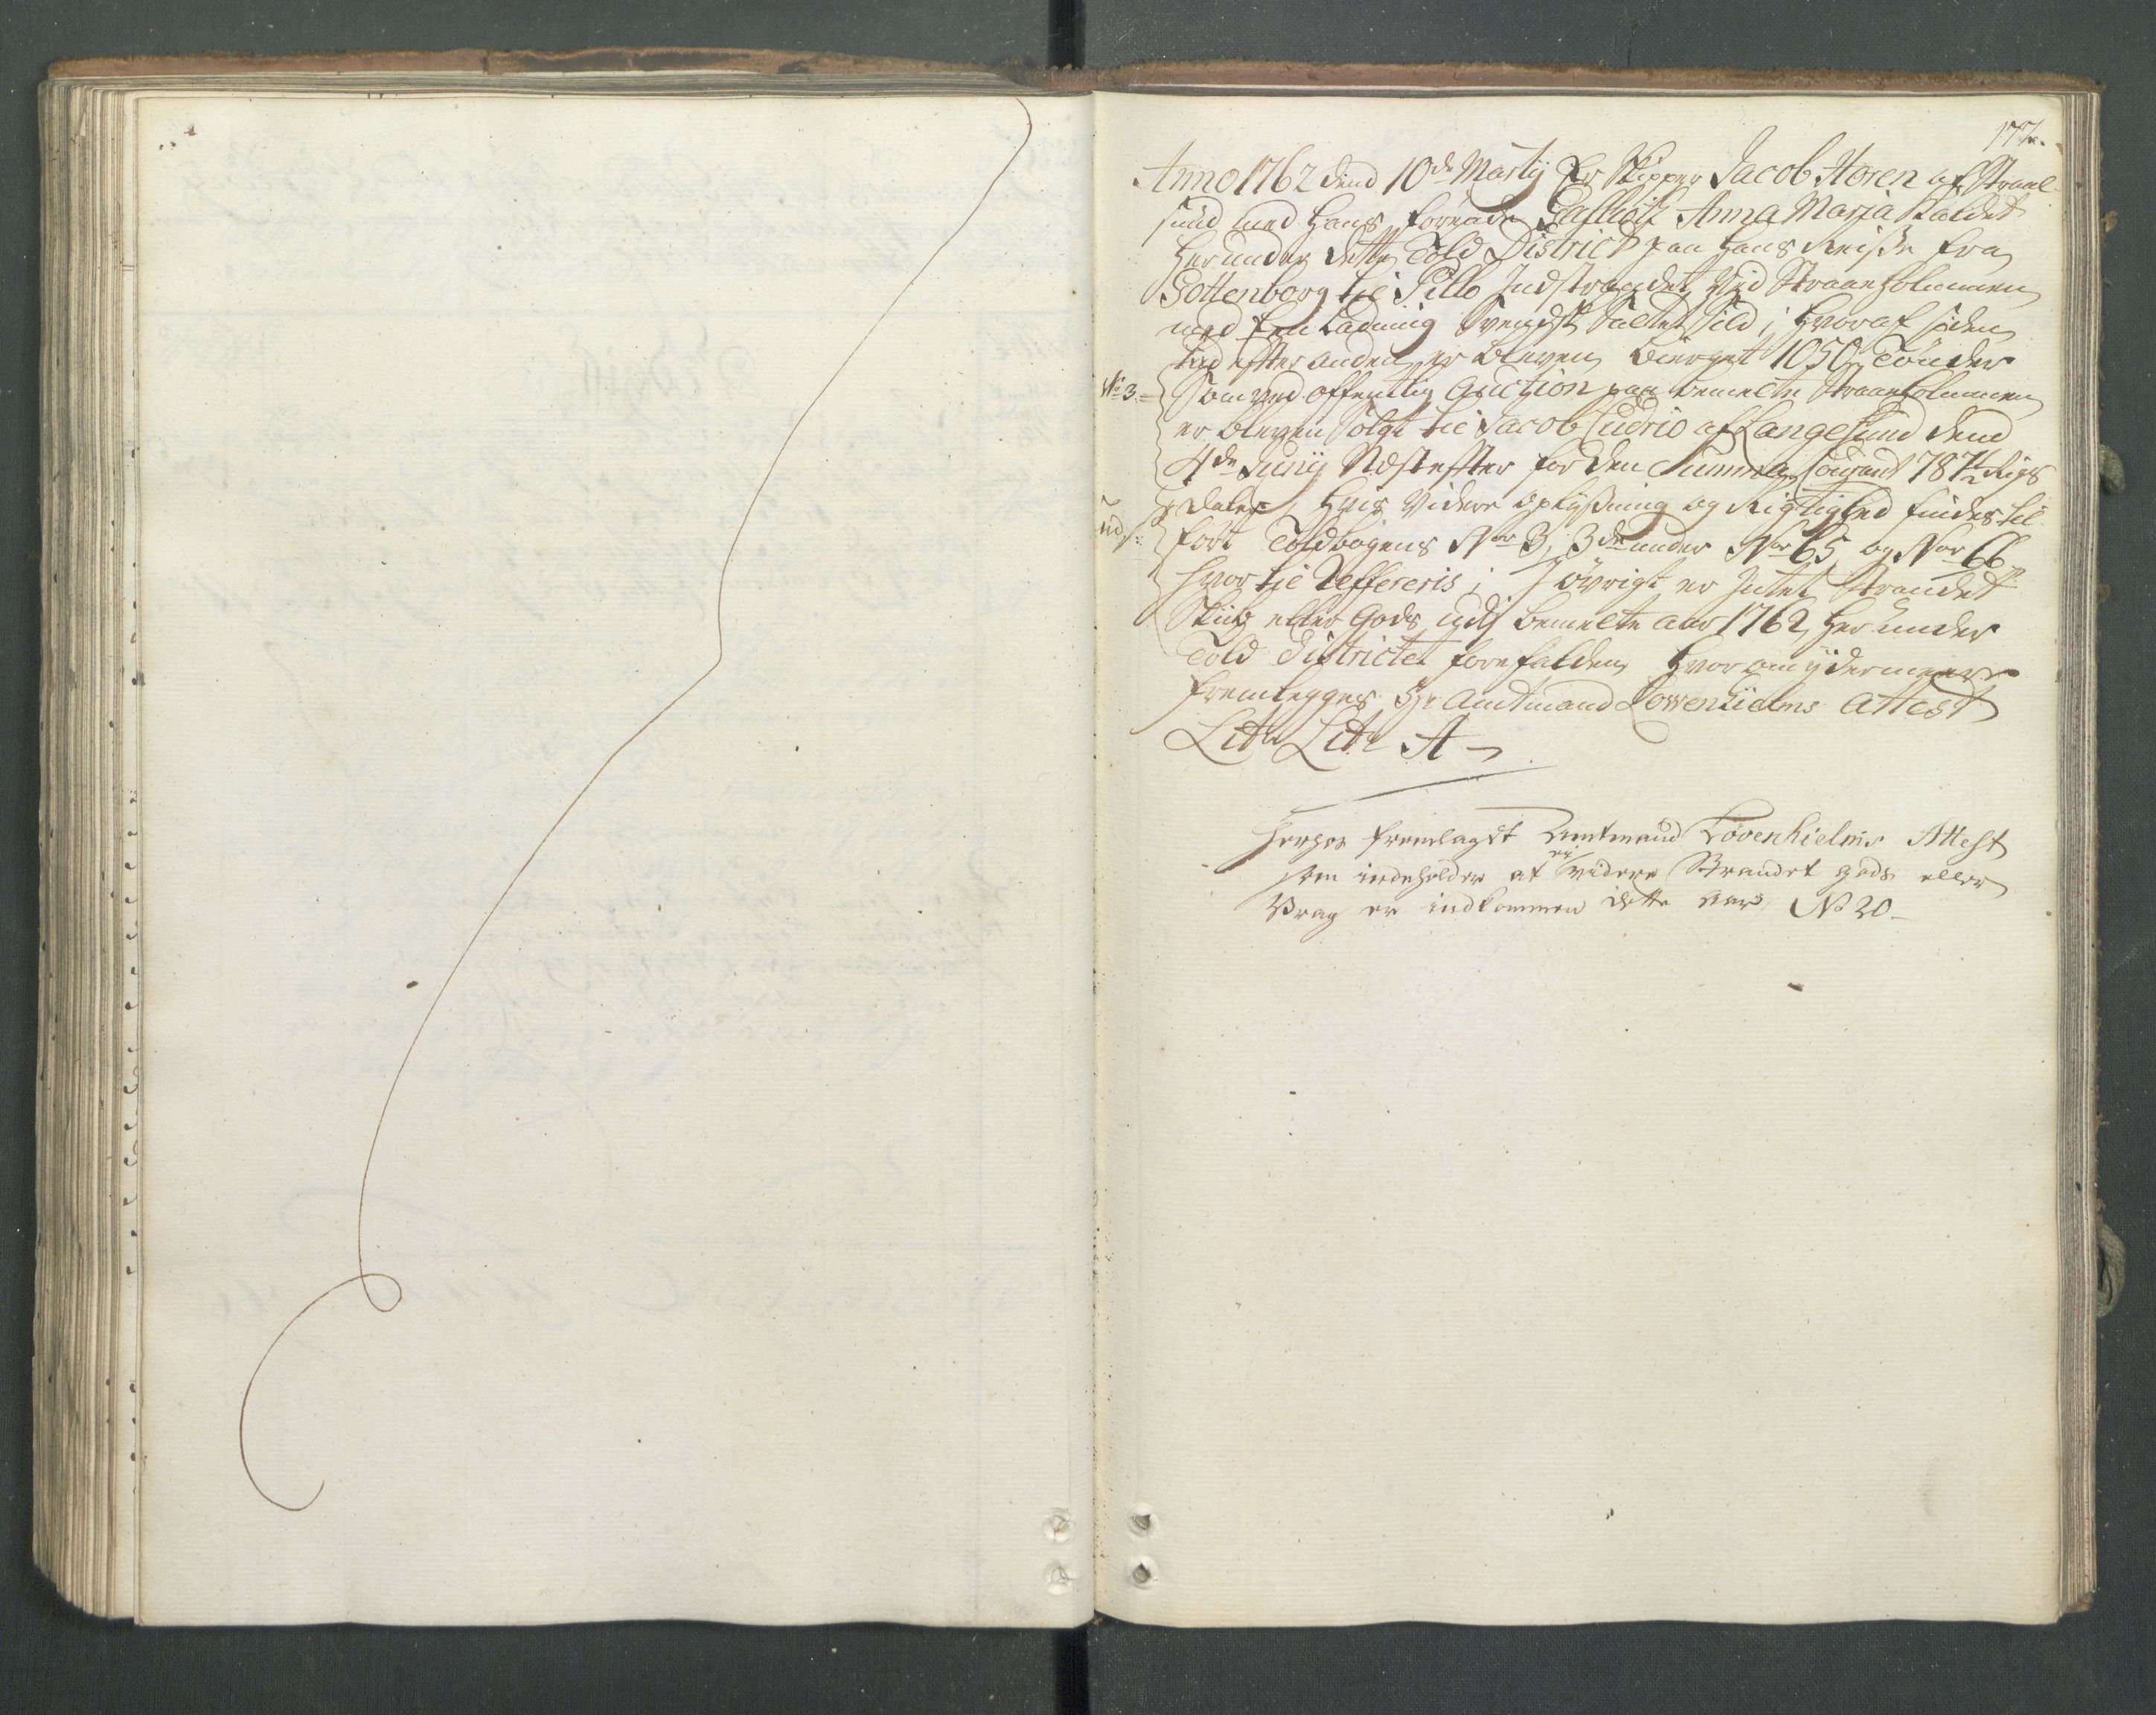 177.
Anno 1762 dend 10de Martij Er Skipper Jacob Horen af Strael
sund med hans förende Gallioth Anna Maria kaldet
her under dette Told District paa hans Reisse fra
Gottenborg til Pillo Indstrandet ved Straaholmmen
med sin Ladning Svensk Saltet Sild; hvoraf siden
tid efter anden er bleven bierget 1050 Tönder
No 3.
Som ved offentlig Auction paa bemelte Straaholmmen
er bleven solgt til Jacob Cudrio af Langesund dend
4de Junij Næstefter for den Summa Courant 787½ Rigs
daler, hvis videre oplysning og Rigtighed findes til
fört Toldbogens No 3, 3de under Nor 65 og Nor 66
hvor til Reffereris; I övrigt er Intet Strandet
Skib eller Gods udj bemelte aar 1762 her under
Told Districtet forefalden hvorom ijdermeere
fremlegges Hr Amtmand Lowenhielms Attest
Litr Litr A
herhos fremlagdt Amtmand Lövenhielms Attest
som indeholder at ey videre Strandet gods eller
Vrag er indkommen dette aar No 20